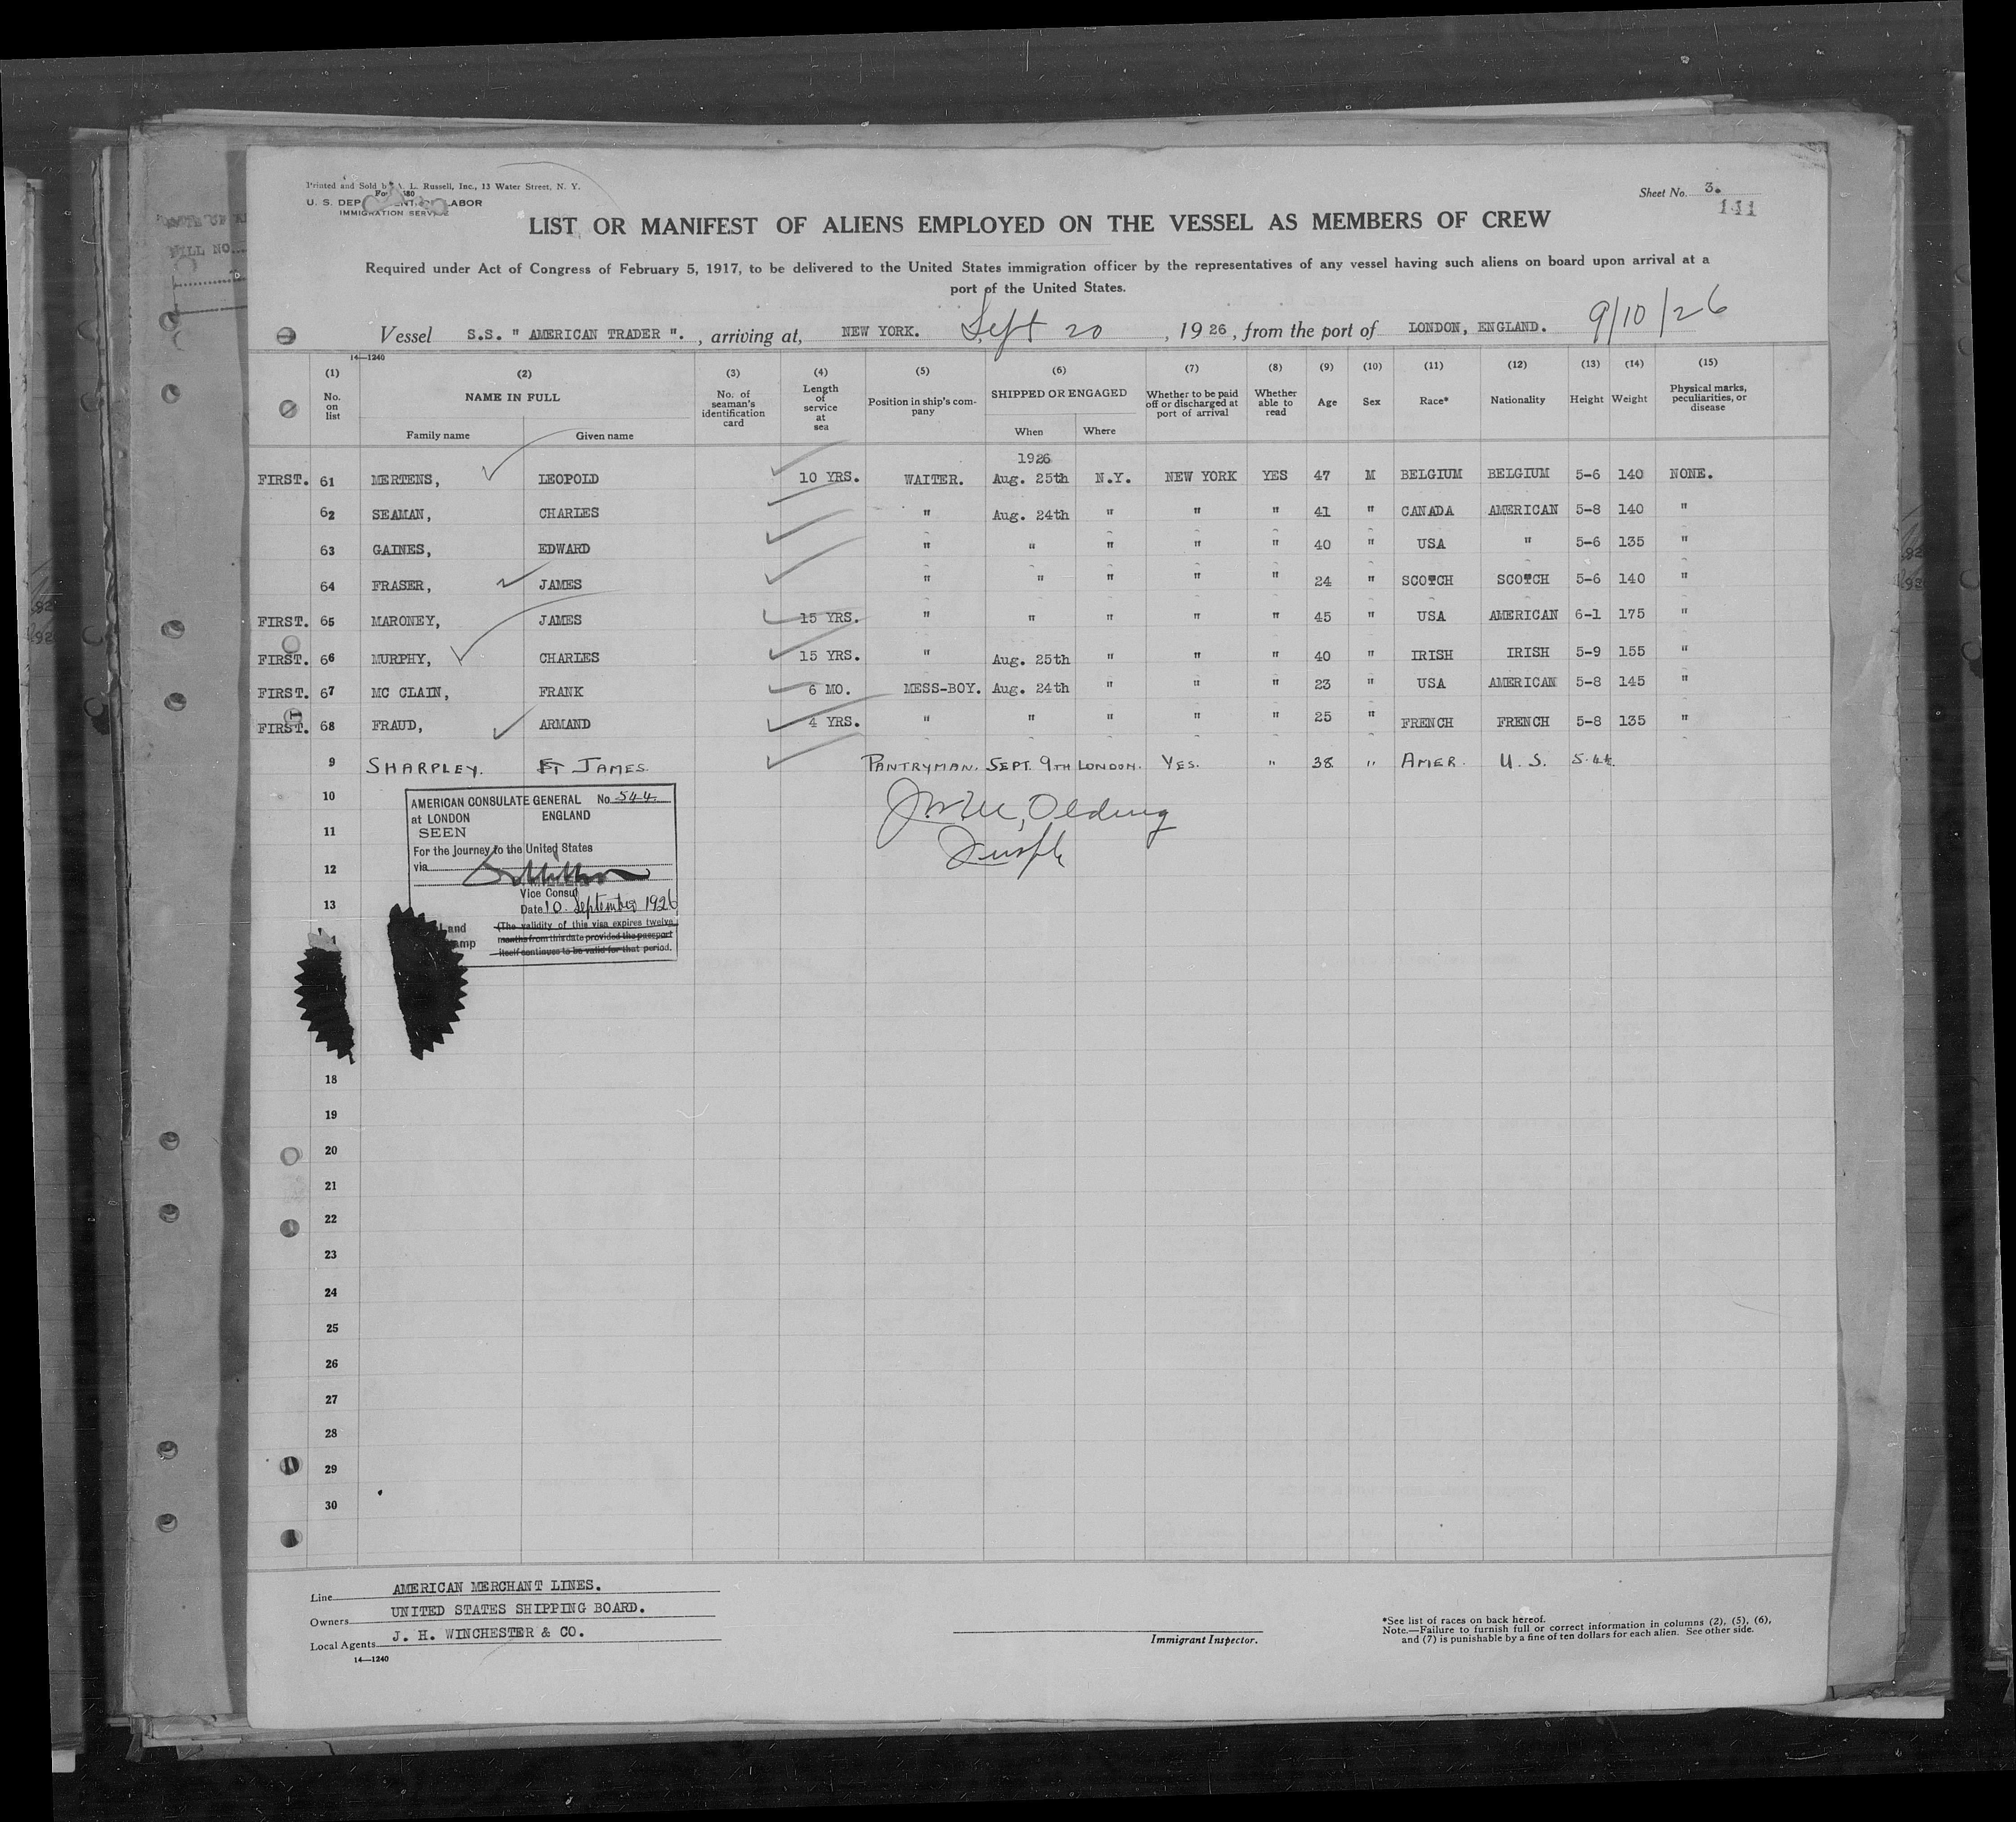 Printed and Sold by A. L. Russell, Inc., 13 Water Street, N. Y.
U. S. DEPARTMENT OF LABOR
IMMIGRATION SERVICE
Sheet No. 3.
141
LIST OR MANIFEST OF ALIENS EMPLOYED ON THE VESSEL AS MEMBERS OF CREW
Required under Act of Congress of February 5, 1917, to be delivered to the United States immigration officer by the representatives of any vessel having such aliens on board upon arrival at a
port of the United States.
9/10/26
Vessel S.S. " AMERICAN TRADER ". , arriving at, NEW YORK. Sept 20 , 1926, from the port of LONDON, ENGLAND.
14—1240
(1) (2) (3) (4) (5) (6) (7) (8) (9) (10) (11) (12) (13) (14) (15)
No. on list NAME IN FULL Family name Given name No. of seaman's identification card Length of service at sea Position in ship's company SHIPPED OR ENGAGED When Where Whether to be paid off or discharged at port of arrival Whether able to read Age Sex Race* Nationality Height Weight Physical marks, peculiarities, or disease
1926
FIRST. 61 MERTENS, LEOPOLD 10 YRS. WAITER. Aug. 25th N.Y. NEW YORK YES 47 M BELGIUM BELGIUM 5-6 140 NONE.
62 SEAMAN, CHARLES " Aug. 24th " " " 41 " CANADA AMERICAN 5-8 140 "
63 GAINES, EDWARD " " " " " 40 " USA " 5-6 135 "
64 FRASER, JAMES " " " " " 24 " SCOTCH SCOTCH 5-6 140 "
FIRST. 65 MARONEY, JAMES 15 YRS. " " " " " 45 " USA AMERICAN 6-1 175 "
FIRST. 66 MURPHY, CHARLES 15 YRS. " Aug. 25th " " " 40 " IRISH IRISH 5-9 155 "
FIRST. 67 MC CLAIN, FRANK 6 MO. MESS-BOY. Aug. 24th " " " 23 " USA AMERICAN 5-8 145 "
FIRST. 68 FRAUD, ARMAND 4 YRS. " " " " " 25 " FRENCH FRENCH 5-8 135 "
9 SHARPLEY. JAMES. PANTRYMAN. SEPT. 9TH LONDON. YES. " 38 " AMER. U. S. 5-4½
10
11
12
13
AMERICAN CONSULATE GENERAL No. 544
at LONDON ENGLAND
SEEN
For the journey to the United States
via
Vice Consul
Date 10 September 1926
(The validity of this visa expires twelve
months from this date provided the passport
itself continues to be valid for that period.
18
19
20
21
22
23
24
25
26
27
28
29
30
Line AMERICAN MERCHANT LINES.
Owners UNITED STATES SHIPPING BOARD.
Local Agents J. H. WINCHESTER & CO.
14—1240
Immigrant Inspector.
*See list of races on back hereof.
Note.—Failure to furnish full or correct information in columns (2), (5), (6),
and (7) is punishable by a fine of ten dollars for each alien. See other side.